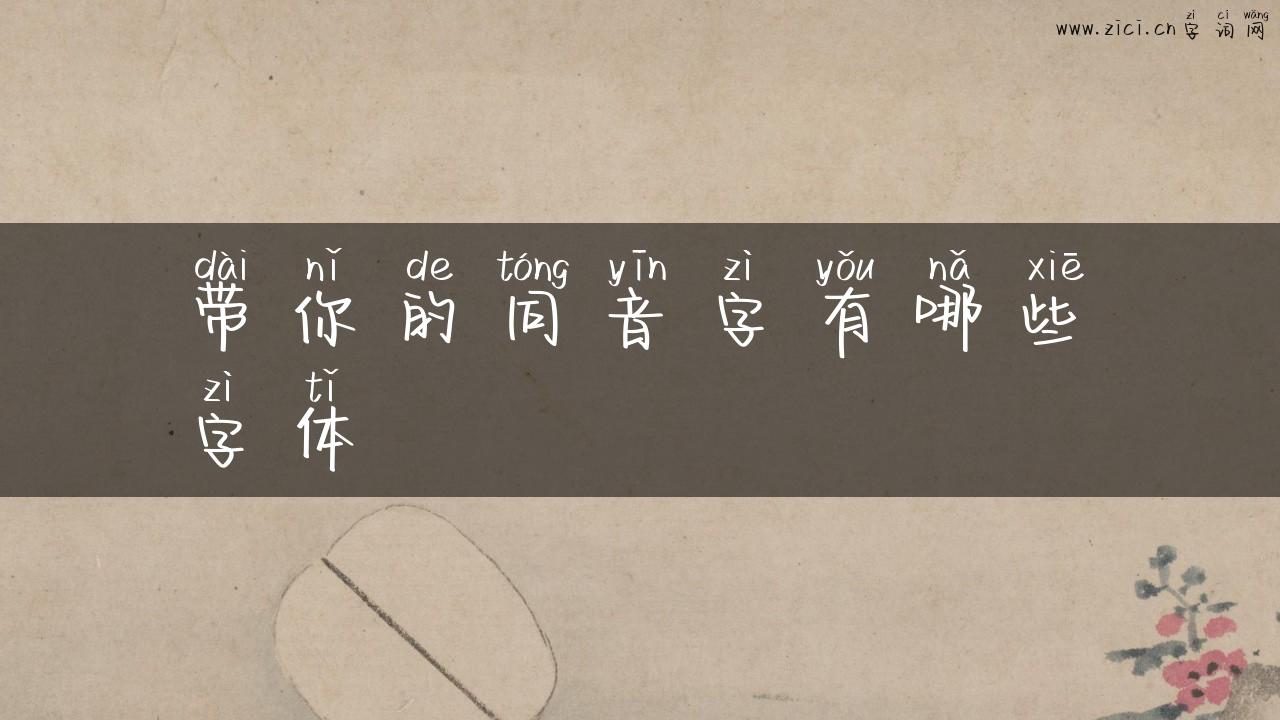 zì cí wǎng
www.zici.cn 字词网
dài nǐ de tóng yīn zì yǒu nǎ xiē
带你的同音字有哪些
zì tǐ
字体